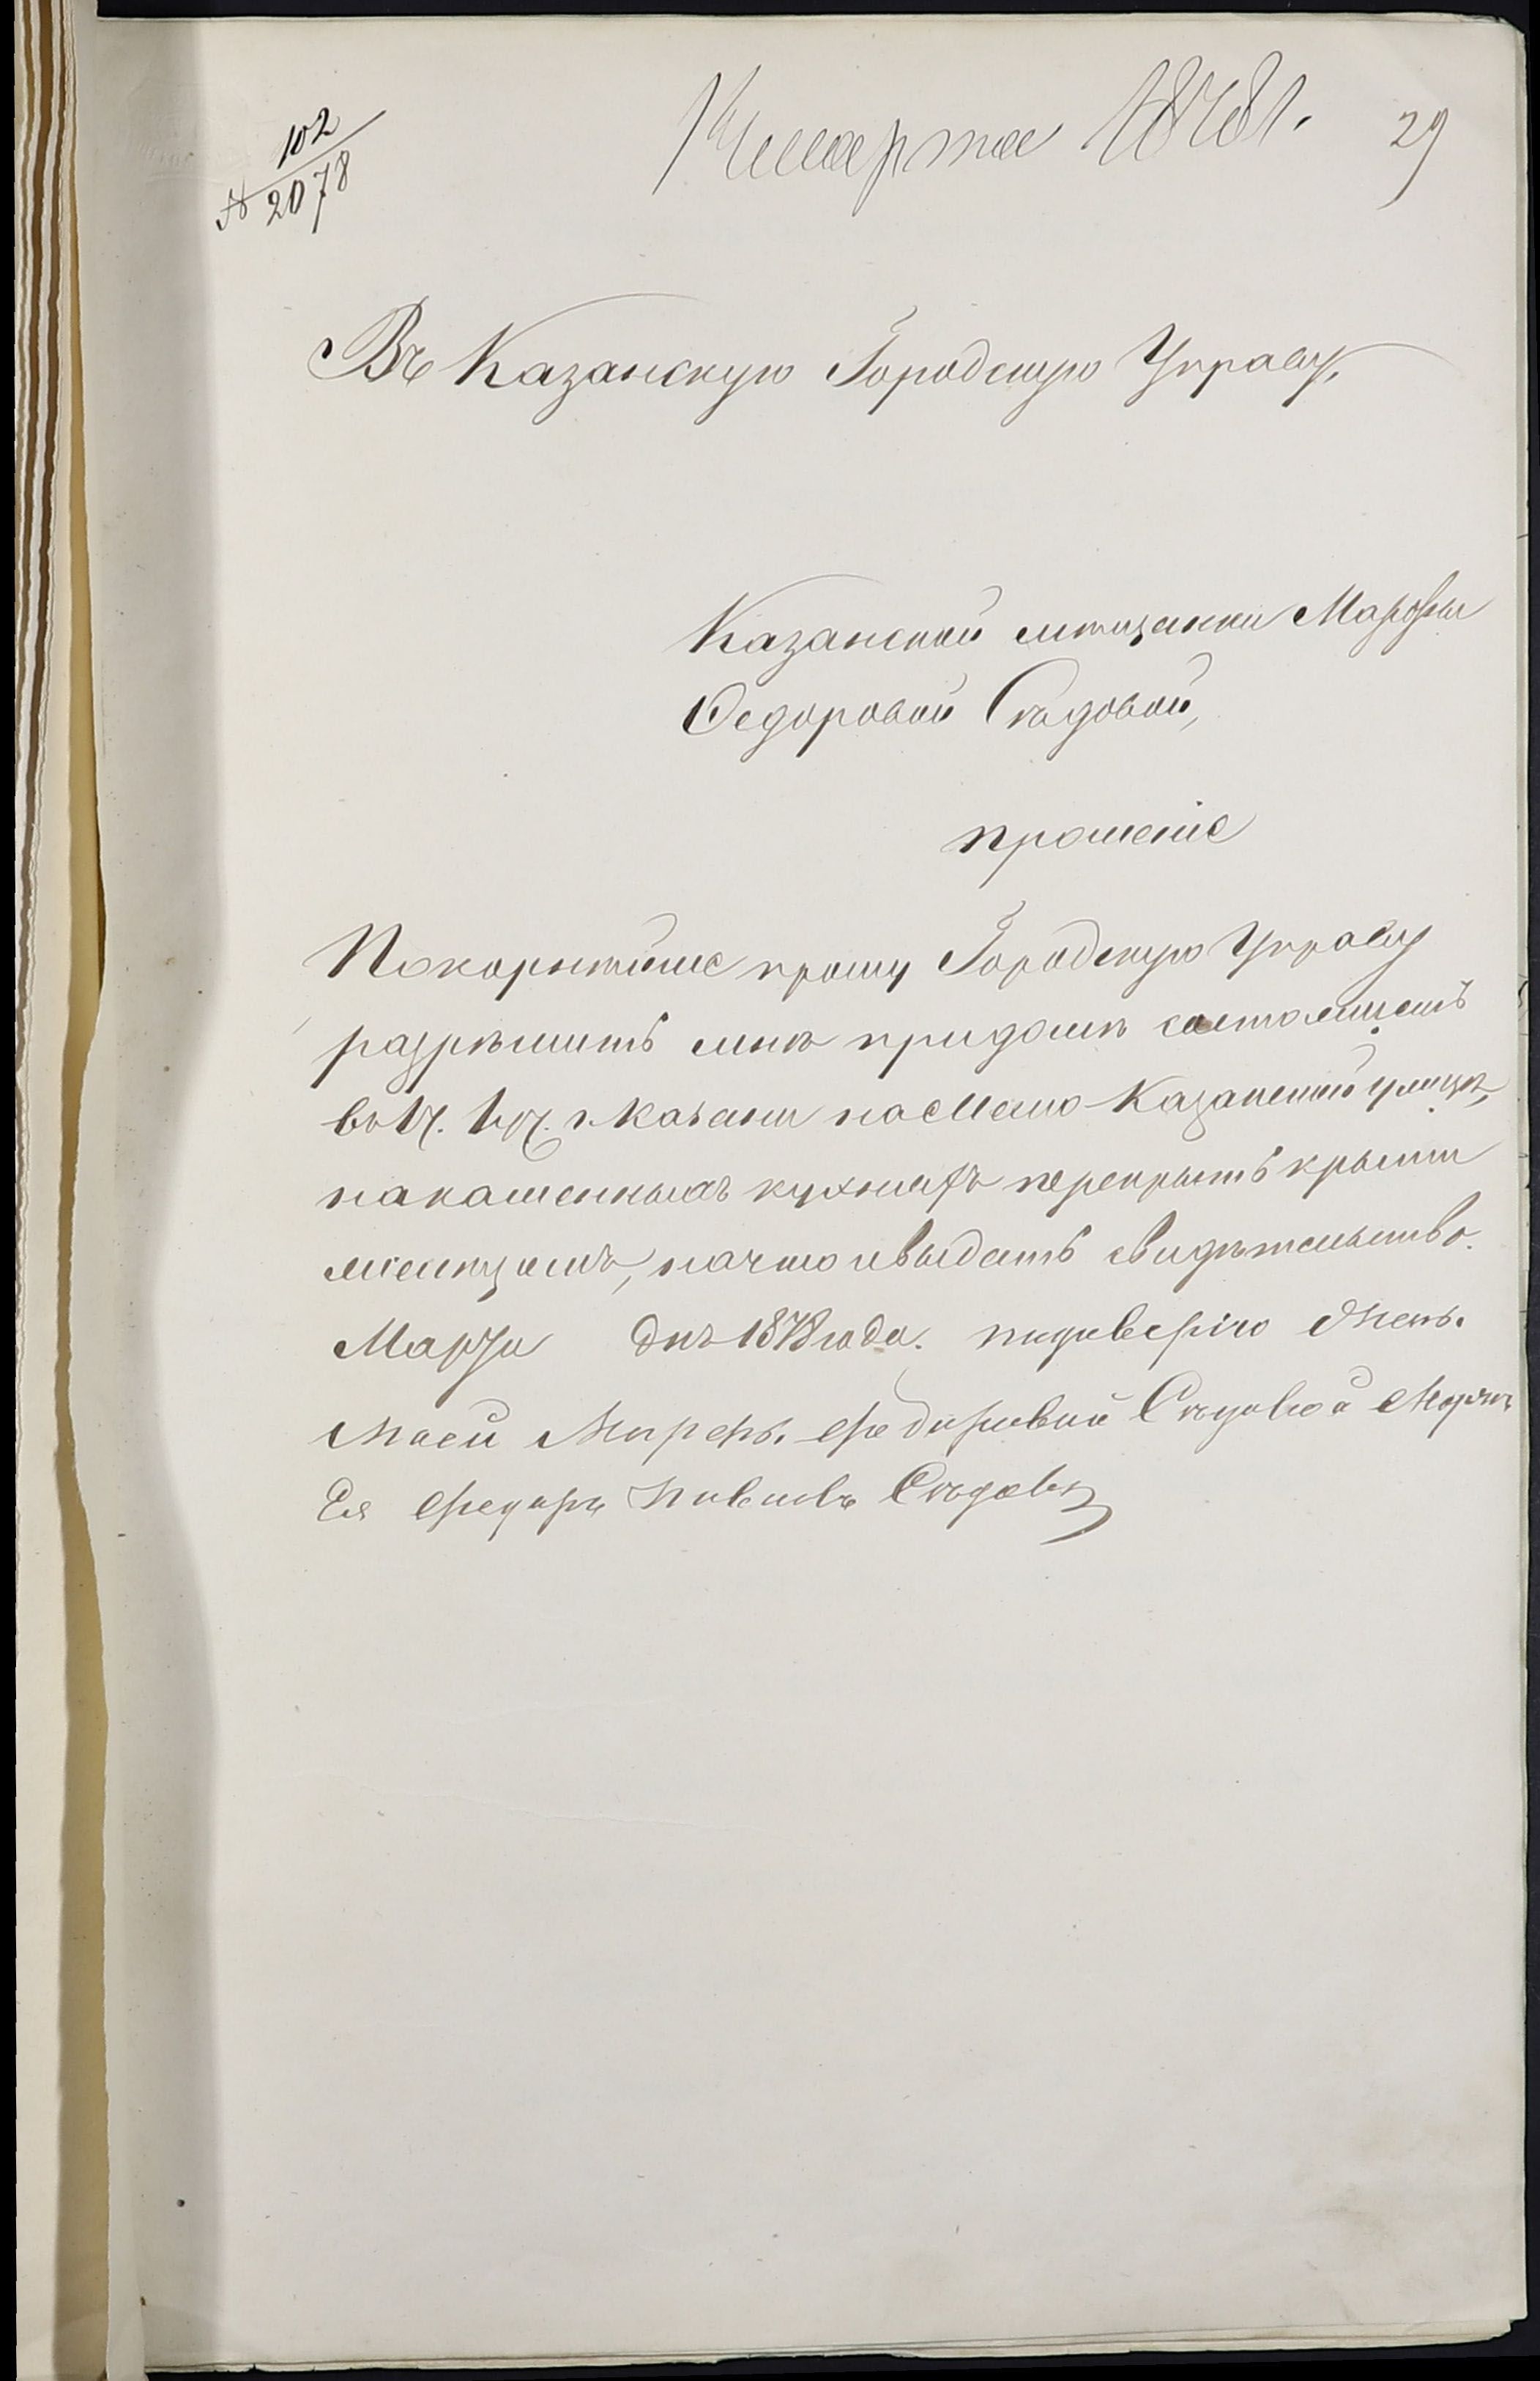 102
№ 2078
14 марта 1878 г.
29
Въ Казанскую Городскую Управу,
Казанской мѣщанки Марѳы
Федоровой Сѣдовой,
прошеніе
Покорнѣйше прошу Городскую Управу
разрѣшить мнѣ придомѣ состоящемъ
въ 1 ч. г. Казани на Мало-Казанской улицѣ,
накаменныхъ кухняхъ перекрыть крыши
желѣзомъ, начто ивыдать свидѣтельство.
Марта дня 1878 года. подоверію
моей Федоровой Сѣдовой
Ея Федоръ Сѣдовъ